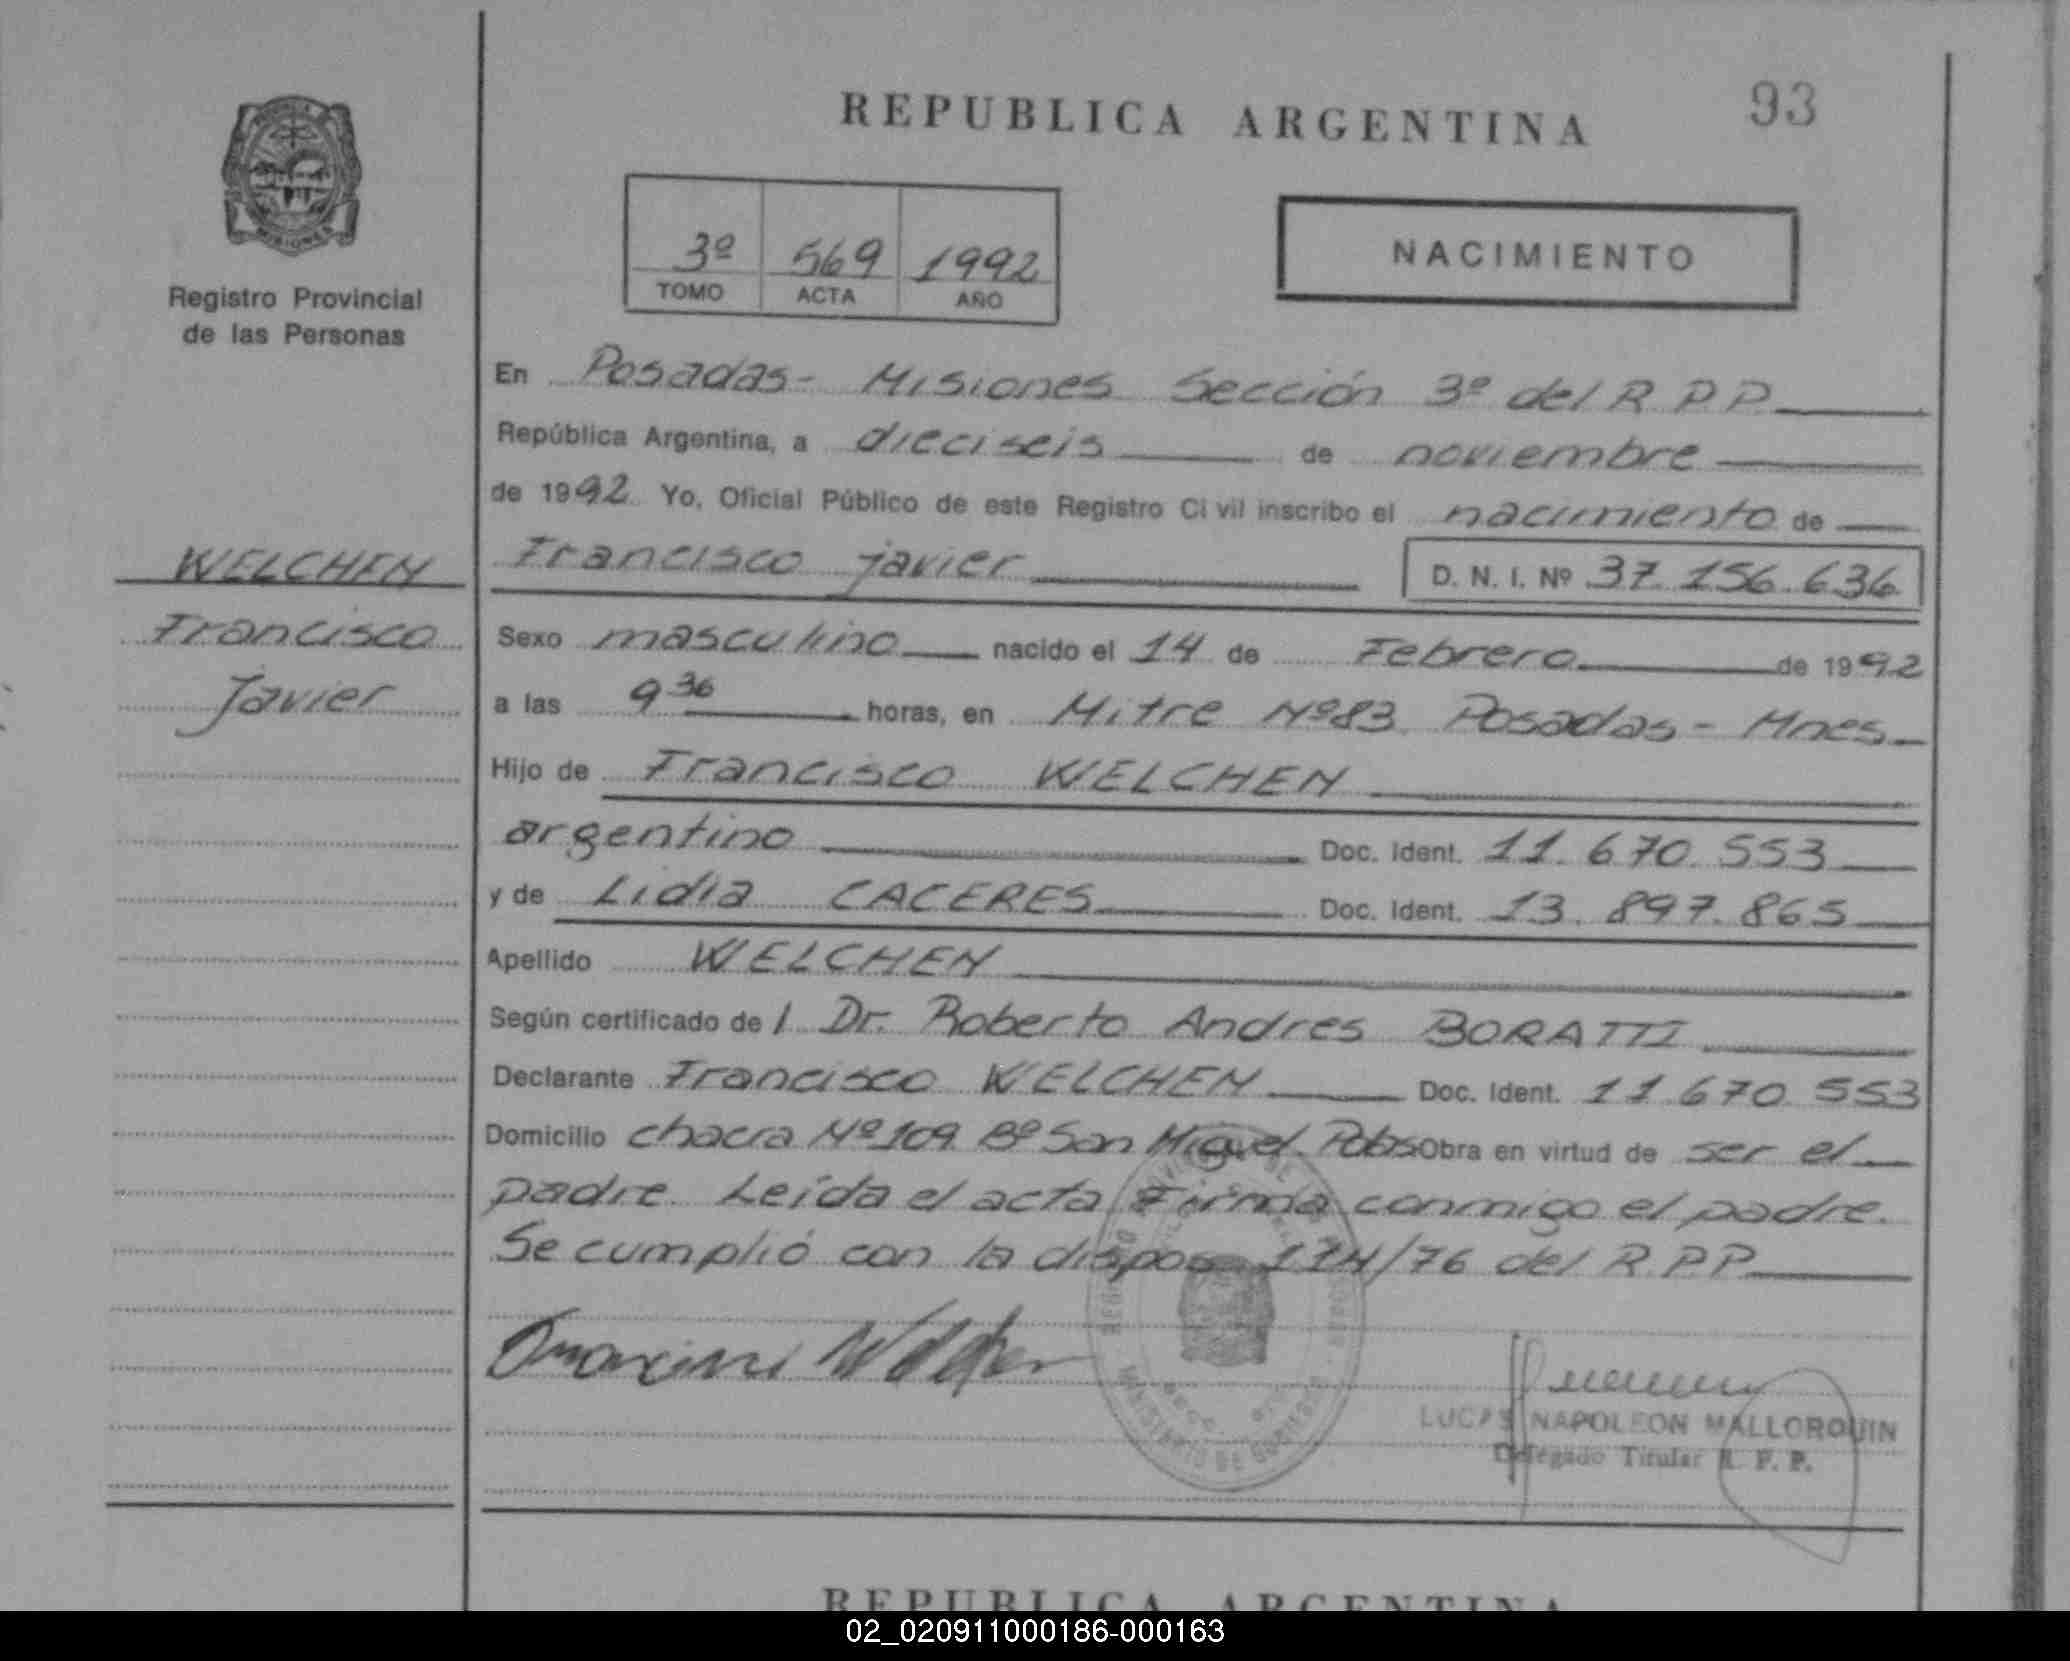 REPUBLICA ARGENTINA
93
MISIONES
Registro Provincial
de las Personas
3º 569 1992
TOMO ACTA AÑO
NACIMIENTO
WELCHEN
Francisco
Javier
En Posadas- Misiones Sección 3º del R.P.P.
República Argentina, a dieciseis de noviembre
de 1992 Yo, Oficial Público de este Registro Civil inscribo el nacimiento de
Francisco javier D. N. I. Nº 37.156.636
Sexo masculino nacido el 14 de Febrero de 1992
a las 9 36 horas, en Mitre Nº83 Posadas - Mnes
Hijo de Francisco WELCHEN
argentino Doc. Ident. 11.670.553
y de Lidia CACERES Doc. Ident. 13.897.865
Apellido WELCHEN
Según certificado de l Dr. Roberto Andres BORATTI
Declarante Francisco WELCHEN Doc. Ident. 11.670.553
Domicilio chacra Nº109 Bº San Miguel Obra en virtud de ser el
padre. Leída el acta Firma conmigo el padre.
Se cumplió con la dispos 114/76 del R.P.P.
LUCAS NAPOLEON MALLORQUIN
Delegado Titular R. P. P.
REPUBLICA ARGENTINA
02_020911000186-000163